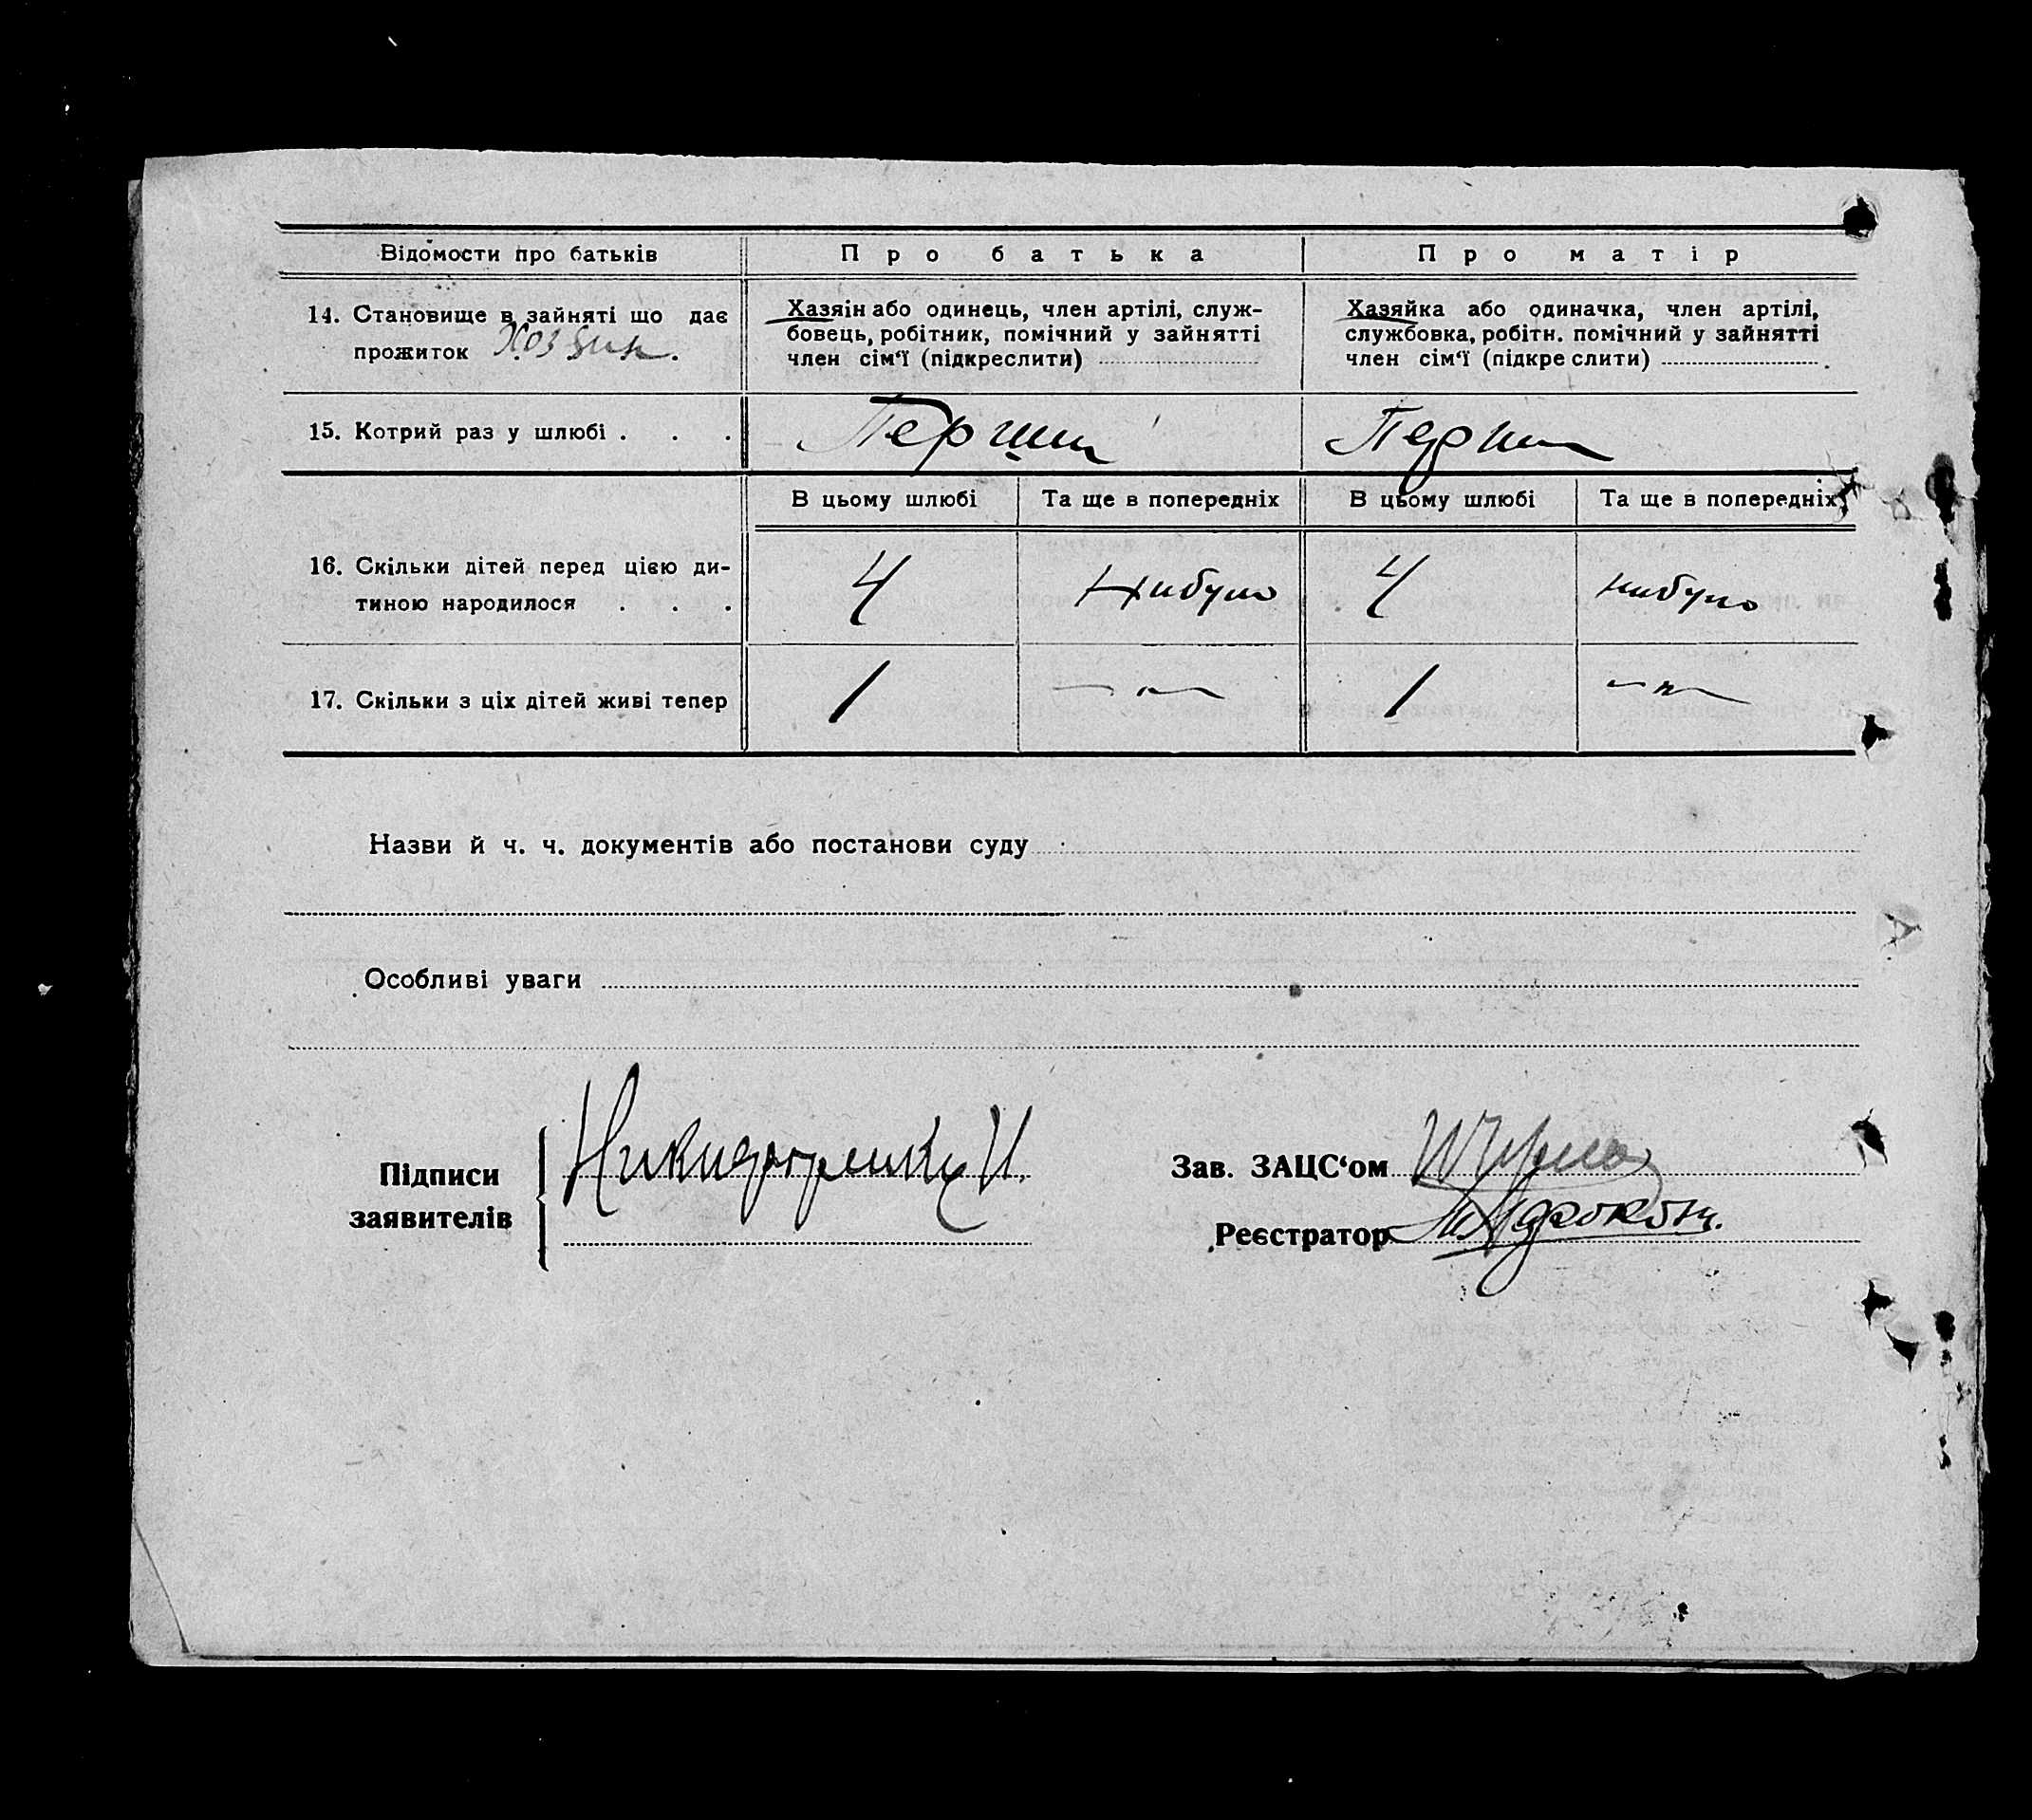 Відомости про батьків
Про батька
Про матір
14. Становище в зайняті що дає
прожиток Хозяин.
Хазяін або одинець, член артілі, служ-
бовець, робітник, помічний у зайнятті
член сім‘ї (підкреслити)
Хазяйка або одиначка, член артілі,
службовка, робітн. помічний у зайнятті
член сім‘ї (підкре слити)
15. Котрий раз у шлюбі . . .
Перший
Перший
В цьому шлюбі
Та ще в попередніх
В цьому шлюбі
Та ще в попередніх
16. Скільки дітей перед цією ди-
тиною народилося . . .
4
Нибуло
4
нибуло
17. Скільки з ціх дітей живі тепер
1
— „ —
1
— „ —
Назви й ч. ч. документів або постанови суду
Особливі уваги
Підписи
заявителів
Зав. ЗАЦС‘ом
Реєстратор